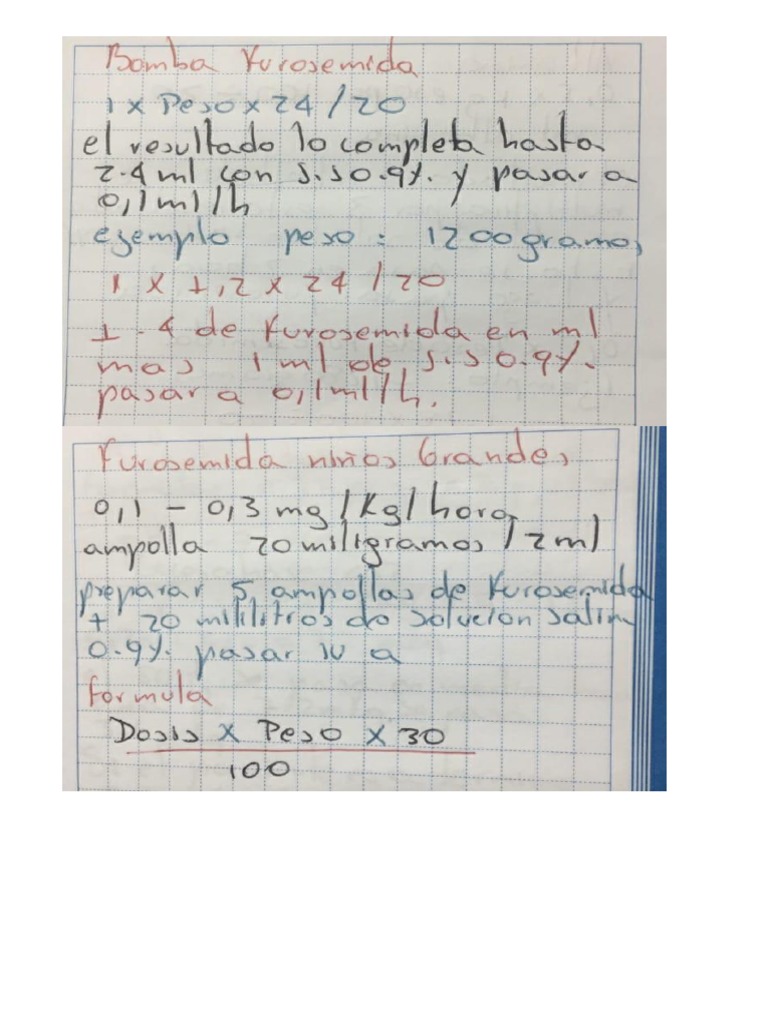 Bomba Furosemida
1 x Peso x 24 / 20
el resultado lo completa hasta
2.4 ml con s.s 0.9%. y pasar a
0,1 ml / h
ejemplo peso : 1200 gramos
1 x 1,2 x 24 / 20
1.4 de Furosemida en ml
mas 1 ml de s.s 0.9%.
pasar a 0,1 ml / h.
Furosemida niños Grandes
0,1 - 0,3 mg / Kg / hora
ampolla 20 miligramos / 2 ml
preparar 5 ampollas de Furosemida
+ 20 mililitros de solucion salin
0.9%. pasar IV a
formula
Dosis x Peso x 30
100